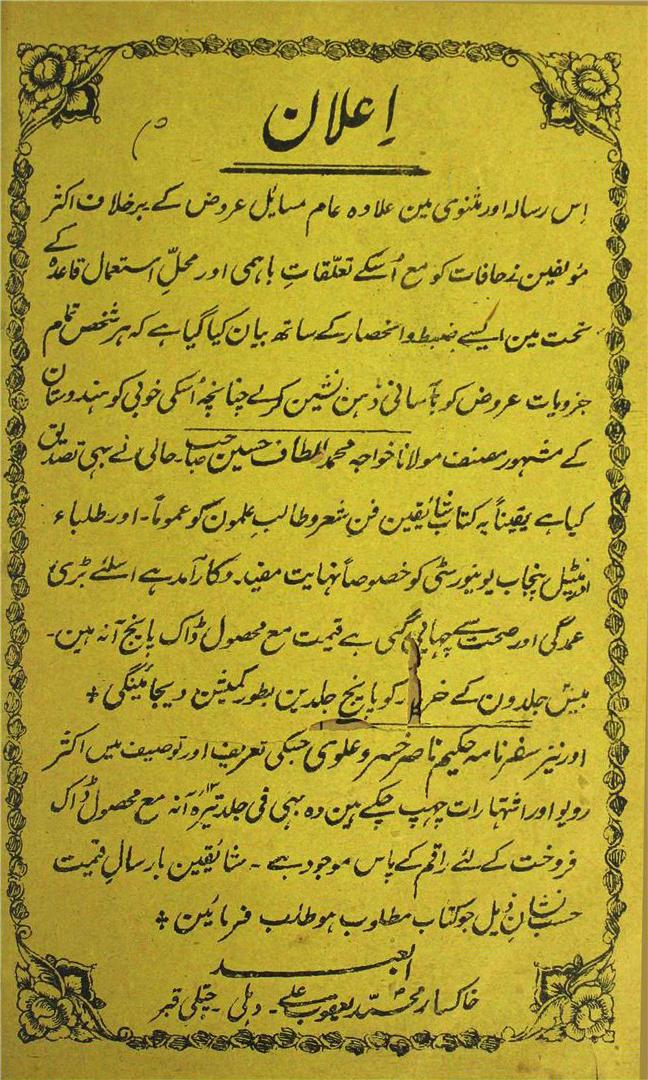 اِعلان
اِس رسالہ اور مثنوی مین علاوہ عام مسایٔل عروض کے برخلاف اکثر
مؤلفین زحافات کو مع اُسکے تعلّقاتِ باہمی اور محلِّ استعمال قاعدہ کے
تحت مین ایسے ضبط و انحصار کے ساتھ بیان کیا گیا ہے کہ ہر شخص تمام
جزویات عروض کو بآسانی ذہن نشین کرلے چنانچہ اُسکی خوبی کو ہندوستان
کے مشہور مصنف مولانا خواجہ محمد الطاف حسین صاحب حالی نے بہی تصدیق
کیا ہے یقیناً یہ کتاب شائقین فنِ شعر و طالبِ علمون کو عموماً۔ اور طلباء
اورنٹیل پنجاب یونیورسٹی کو خصوصاً نہایت مفید۔ و کارآمد ہے اسلئے بڑی
عمدگی اور صحت سے چہاپی گئی ہے قیمت مع محصول ڈاک پانچ آنہ ہین۔
بیس جلدون کے خریدار کو پانچ جلدین بطور کمیشن دیجائینگی +
اور نیز سفرنامہ حکیم ناصر خسرو علوی جسکی تعریف اور توصیف میں اکثر
رویو اور اشتہارات چہپ چکے ہین وہ بہی فی جلد تیرہ ۱۳ آنہ مع محصول ڈاک
فروخت کے لئے راقم کے پاس موجود ہے۔ شائقین بارسالِ قیمت
حسب نشانِ ذیل جو کتاب مطلوب ہو طلب فرمائین +
العبد
خاکسار محمد یعقوب علے۔ دہلی۔ چتلی قبر